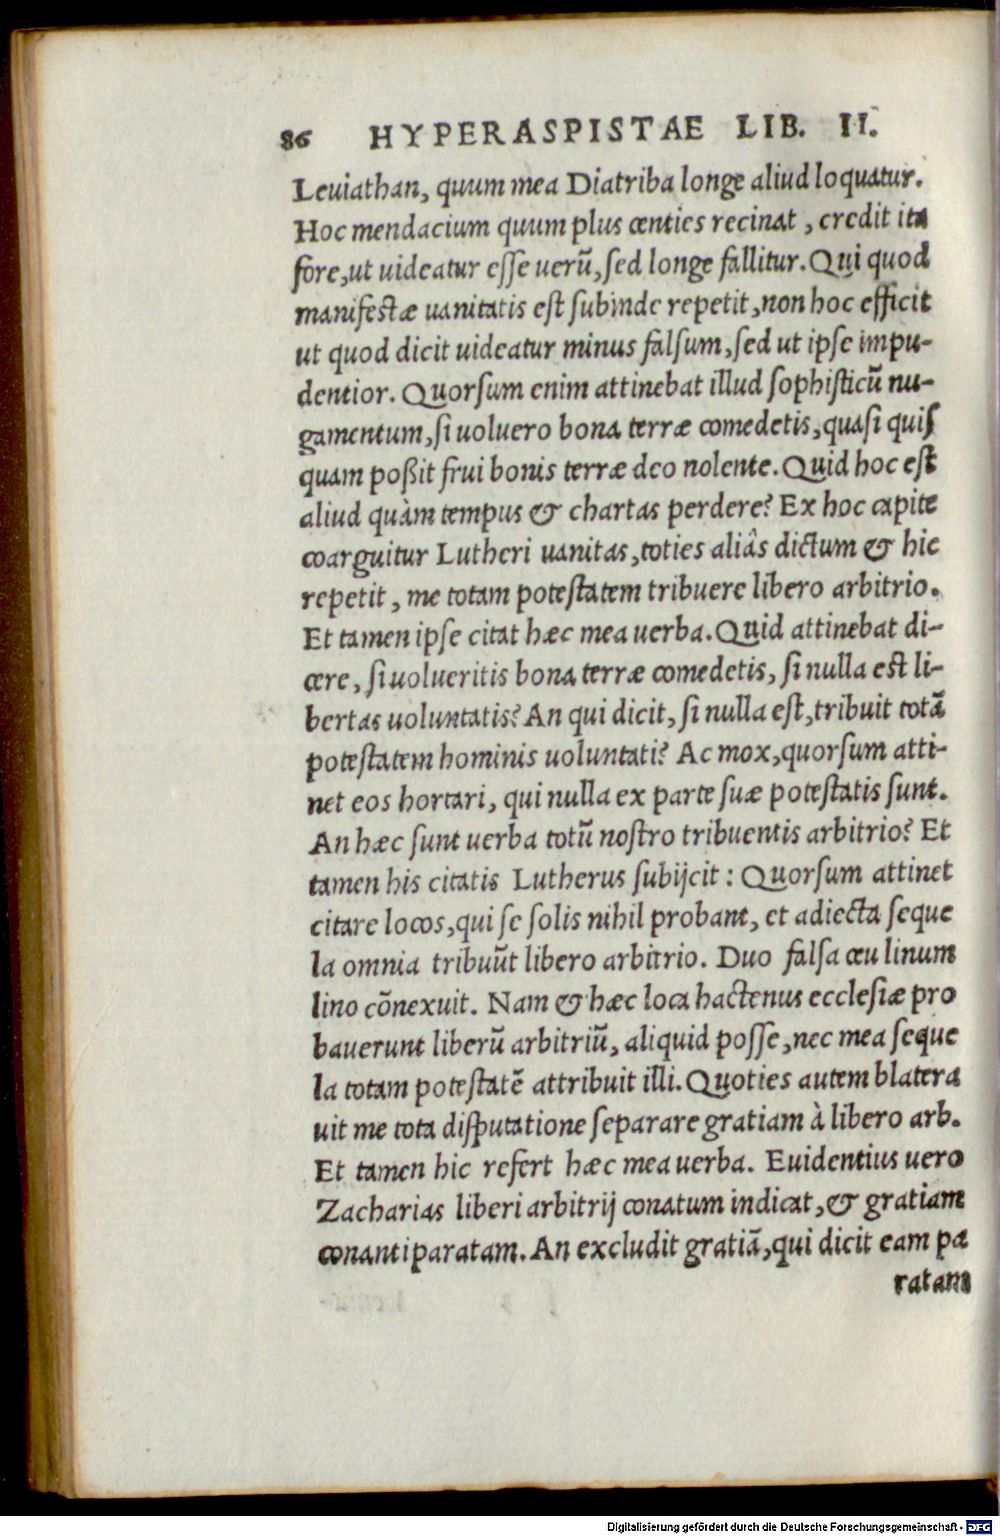 86 HYPERASPISTAE LIB. II.
Leuiathan, quum mea Diatriba longe aliud loquatur.
Hoc mendacium quum plus centies recinat, credit ita
fore, ut uideatur esse uerũ, sed longe fallitur. Qui quod
manifestæ uanitatis est subinde repetit, non hoc efficit
ut quod dicit uideatur minus falsum, sed ut ipse impu-
dentior. Quorsum enim attinebat illud sophisticũ nu-
gamentum, si uoluero bona terræ comedetis, quasi quis
quam poßit frui bonis terræ deo nolente. Quid hoc est
aliud quàm tempus & chartas perdere? Ex hoc capite
coarguitur Lutheri uanitas, toties aliâs dictum & hic
repetit, me totam potestatem tribuere libero arbitrio.
Et tamen ipse citat hæc mea uerba. Quid attinebat di-
cere, si uolueritis bona terræ comedetis, si nulla est li-
bertas uoluntatis? An qui dicit, si nulla est, tribuit totã
potestatem hominis uoluntati? Ac mox, quorsum atti-
net eos hortari, qui nulla ex parte suæ potestatis sunt.
An hæc sunt uerba totũ nostro tribuentis arbitrio? Et
tamen his citatis Lutherus subijcit: Quorsum attinet
citare locos, qui se solis nihil probant, et adiecta seque
la omnia tribuũt libero arbitrio. Duo falsa ceu linum
lino cõnexuit. Nam & hæc loca hactenus ecclesiæ pro
bauerunt liberũ arbitriũ, aliquid posse, nec mea seque
la totam potestatẽ attribuit illi. Quoties autem blatera
uit me tota disputatione separare gratiam à libero arb.
Et tamen hic refert hæc mea uerba. Euidentius uero
Zacharias liberi arbitrij conatum indicat, & gratiam
conanti paratam. An excludit gratiã, qui dicit eam pa
ratam
Digitalisierung gefördert durch die Deutsche Forschungsgemeinschaft - DFG